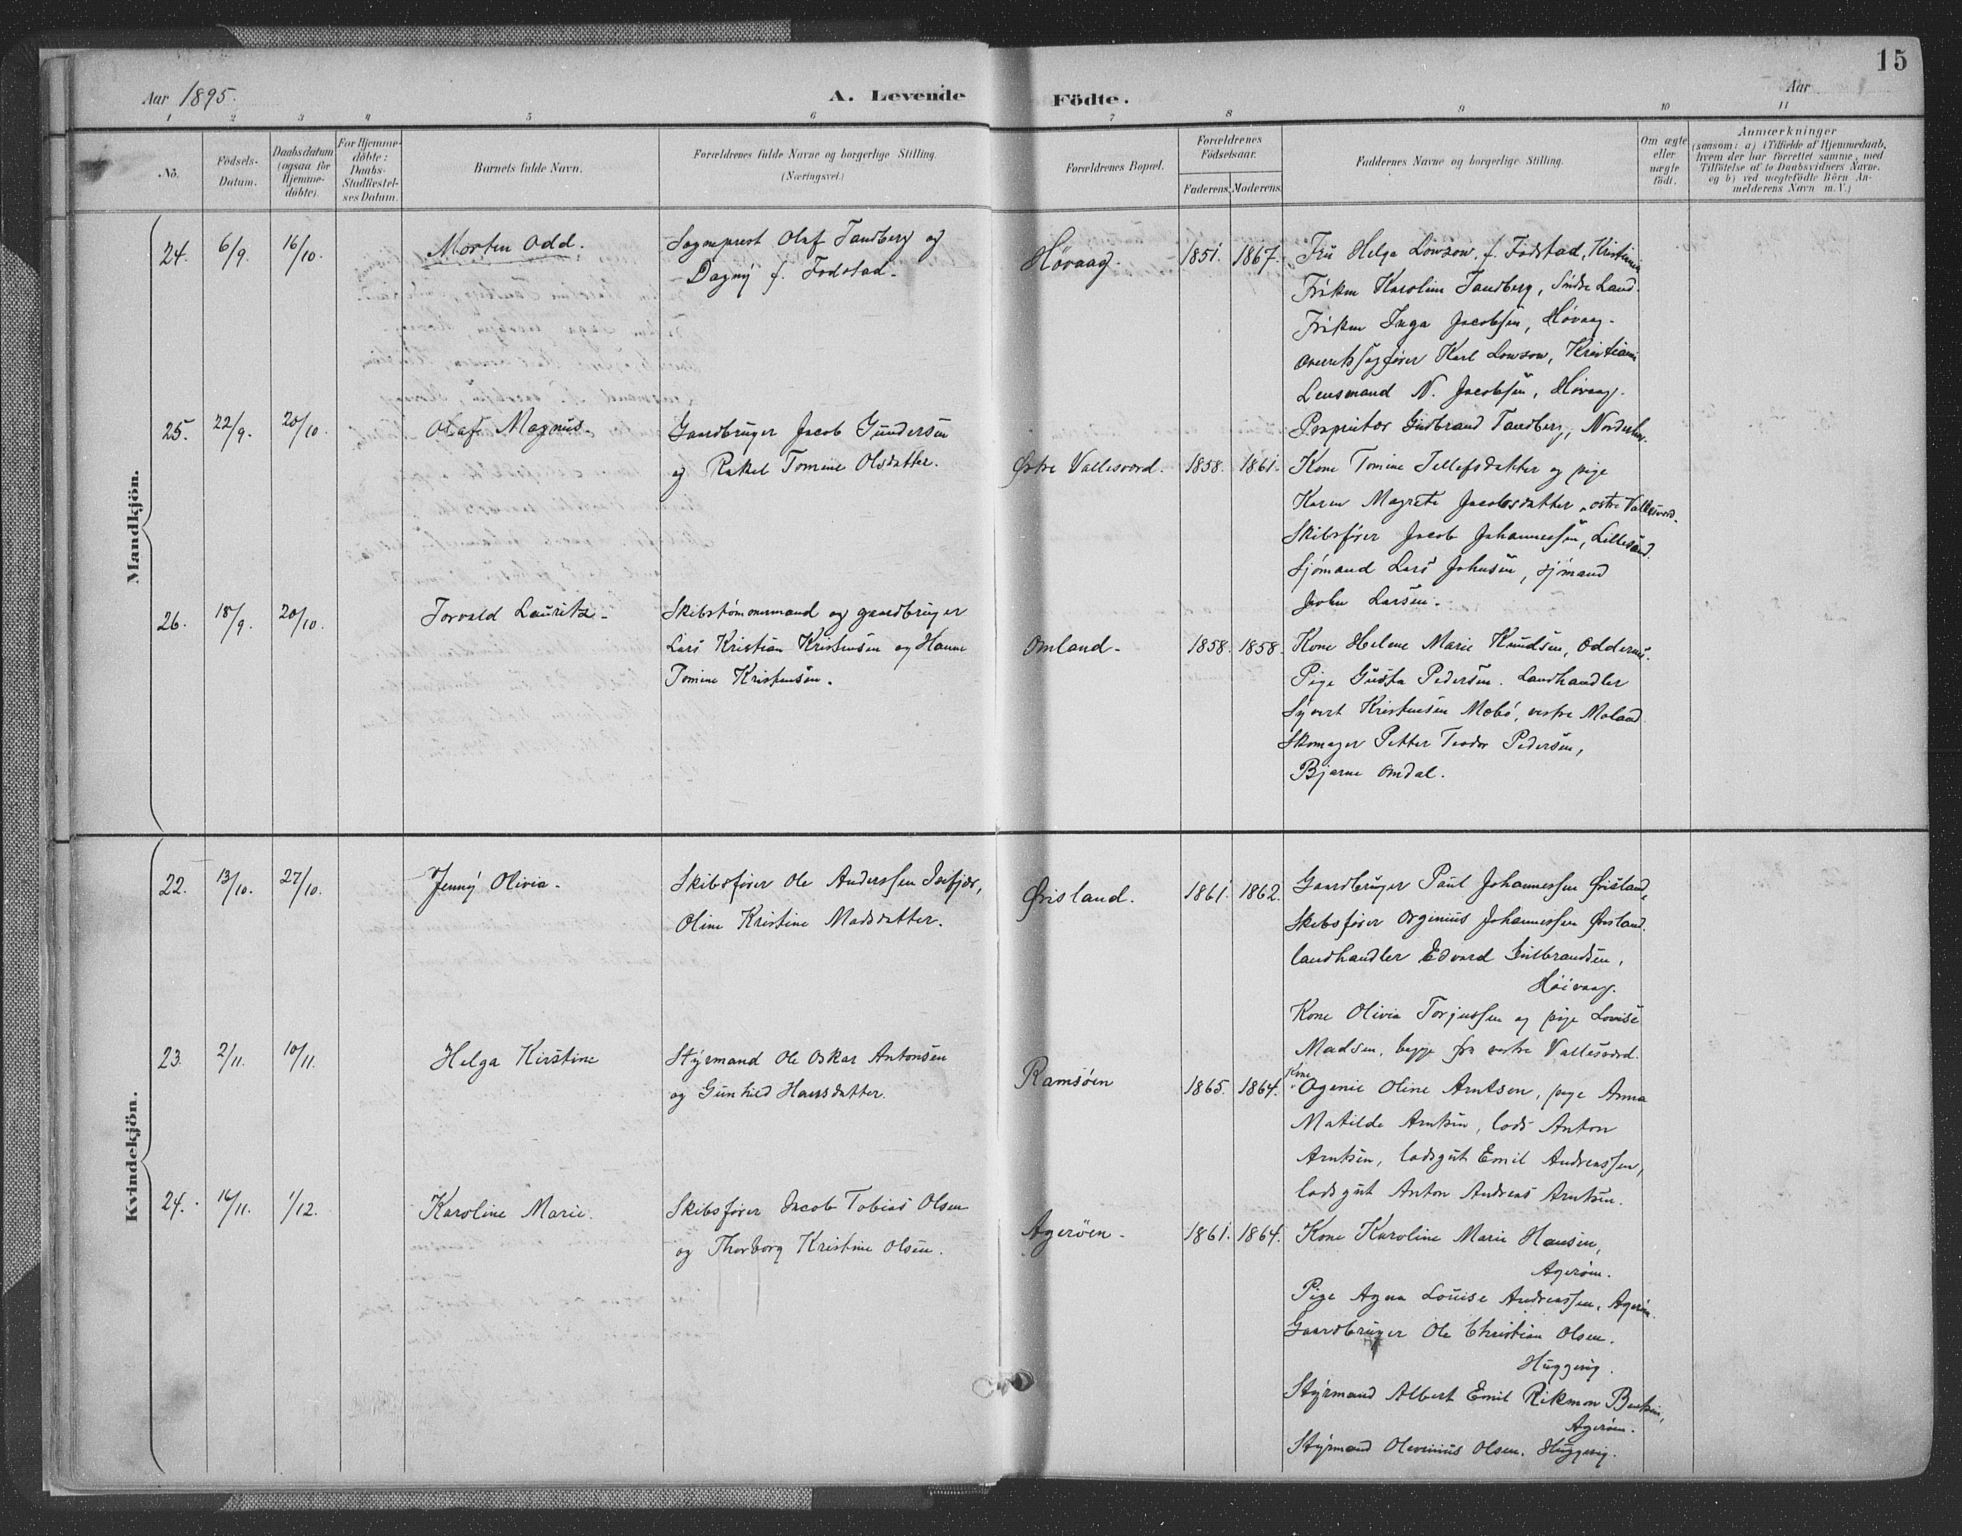 15
Aar 1895.
A. Levende Födte.
Aar
1 2 3 4 5 6 7 8 9 10 11
No.
Födsels-Datum.
Daabsdatum (ogsaa for Hjemmedöbte).
For Hjemmedöbte: Daabs-Stadfæstelses Datum.
Barnets fulde Navn.
Forældrenes fulde Navne og borgerlige Stilling.
(Næringsvei.)
Forældrenes Bopæl.
Forældrenes Födselsaar.
Faderens. Moderens.
Faddernes Navne og borgerlige Stilling.
Om ægte eller uægte födt.
Anmærkninger
(saasom: a) i Tilfælde af Hjemmedaab,
hvem der har forrettet samme, med
Tilföielse af to Daabsvidners Navne,
og b) ved uægtefödte Börn An-
melderens Navn m. V.)
Mandkjön.
24. 6/9. 16/10. Morten Odd. Sogneprest Olaf Tandberg og
Dagny f. Fodstad.
Høvaag. 1851. 1867. Fru Helga Lowzow, f. Fodstad, Kristiania
Frøken Karoline Tandberg, Søndre Land.
Frøken Inga Jacobsen, Høvaag.
Overretssagfører Karl Lowzow, Kristiania
Lensmand N. Jacobsen, Høvaag.
Proprietær Gudbrand Tandberg, Norderhov.
25. 22/9. 20/10. Olaf Magnus. Gaardbruger Jacob Gundersen
og Rakel Tomine Olsdatter.
Østre Vallesværd. 1858. 1861. Kone Tomine Tellefsdatter og pige
Karen Magrete Jacobsdatter, østre Vallesværd.
Skibsfører Jacob Johannessen, Lillesand.
Sjømand Lars Johnsen, sjømand
John Larsen.
26. 18/9. 20/10. Torvald Lauritz. Skibstømmermand og gaardbruger
Lars Kristian Kristensen og Hanne
Tomine Kristensen.
Omland. 1858. 1858. Kone Helene Marie Knudsen, Oddernes.
Pige Gusta Pedersen. Landhandler
Syvert Kristensen Mæbø, vestre Moland.
Skomager Petter Teodor Pedersen,
Bjarne Omdal.
Kvindekjön.
22. 13/10. 27/10. Jenny Olivia. Skibsfører Ole Anderssen Isefjær,
Oline Kristine Madsdatter.
Øvisland. 1861. 1862. Gaardbruger Paul Johannessen Øvisland,
Skibsfører Orgenius Johannessen Øvisland.
landhandler Edvard Gulbrandsen,
Høivaag.
Kone Olivia Torjussen og pige Lovise
Madsen, begge fra vestre Vallesværd.
23. 2/11. 10/11. Helga Kirstine Styrmand Ole Oskar Antonsen
og Gunhild Hansdatter.
Ramsøen 1865. 1864. Kone Ogenie Oline Arntsen, pige Anna
Matilde Arntsen, lods Anton
Arntsen, lodsgut Emil Andreassen,
lodsgut Anton Andreas Arntsen.
24. 14/11. 1/12. Karoline Marie. Skibsfører Jacob Tobias Olsen
og Thorborg Kristine Olsen.
Agerøen. 1861. 1864. Kone Karoline Marie Hansen,
Agerøen.
Pige Agna Louise Andreassen, Agerøen.
Gaardbruger Ole Christian Olsen.
Huggevig.
Styrmand Albert Emil Rikmon Bentsen,
Agerøen.
Styrmand Olevinius Olsen. Huggevig.